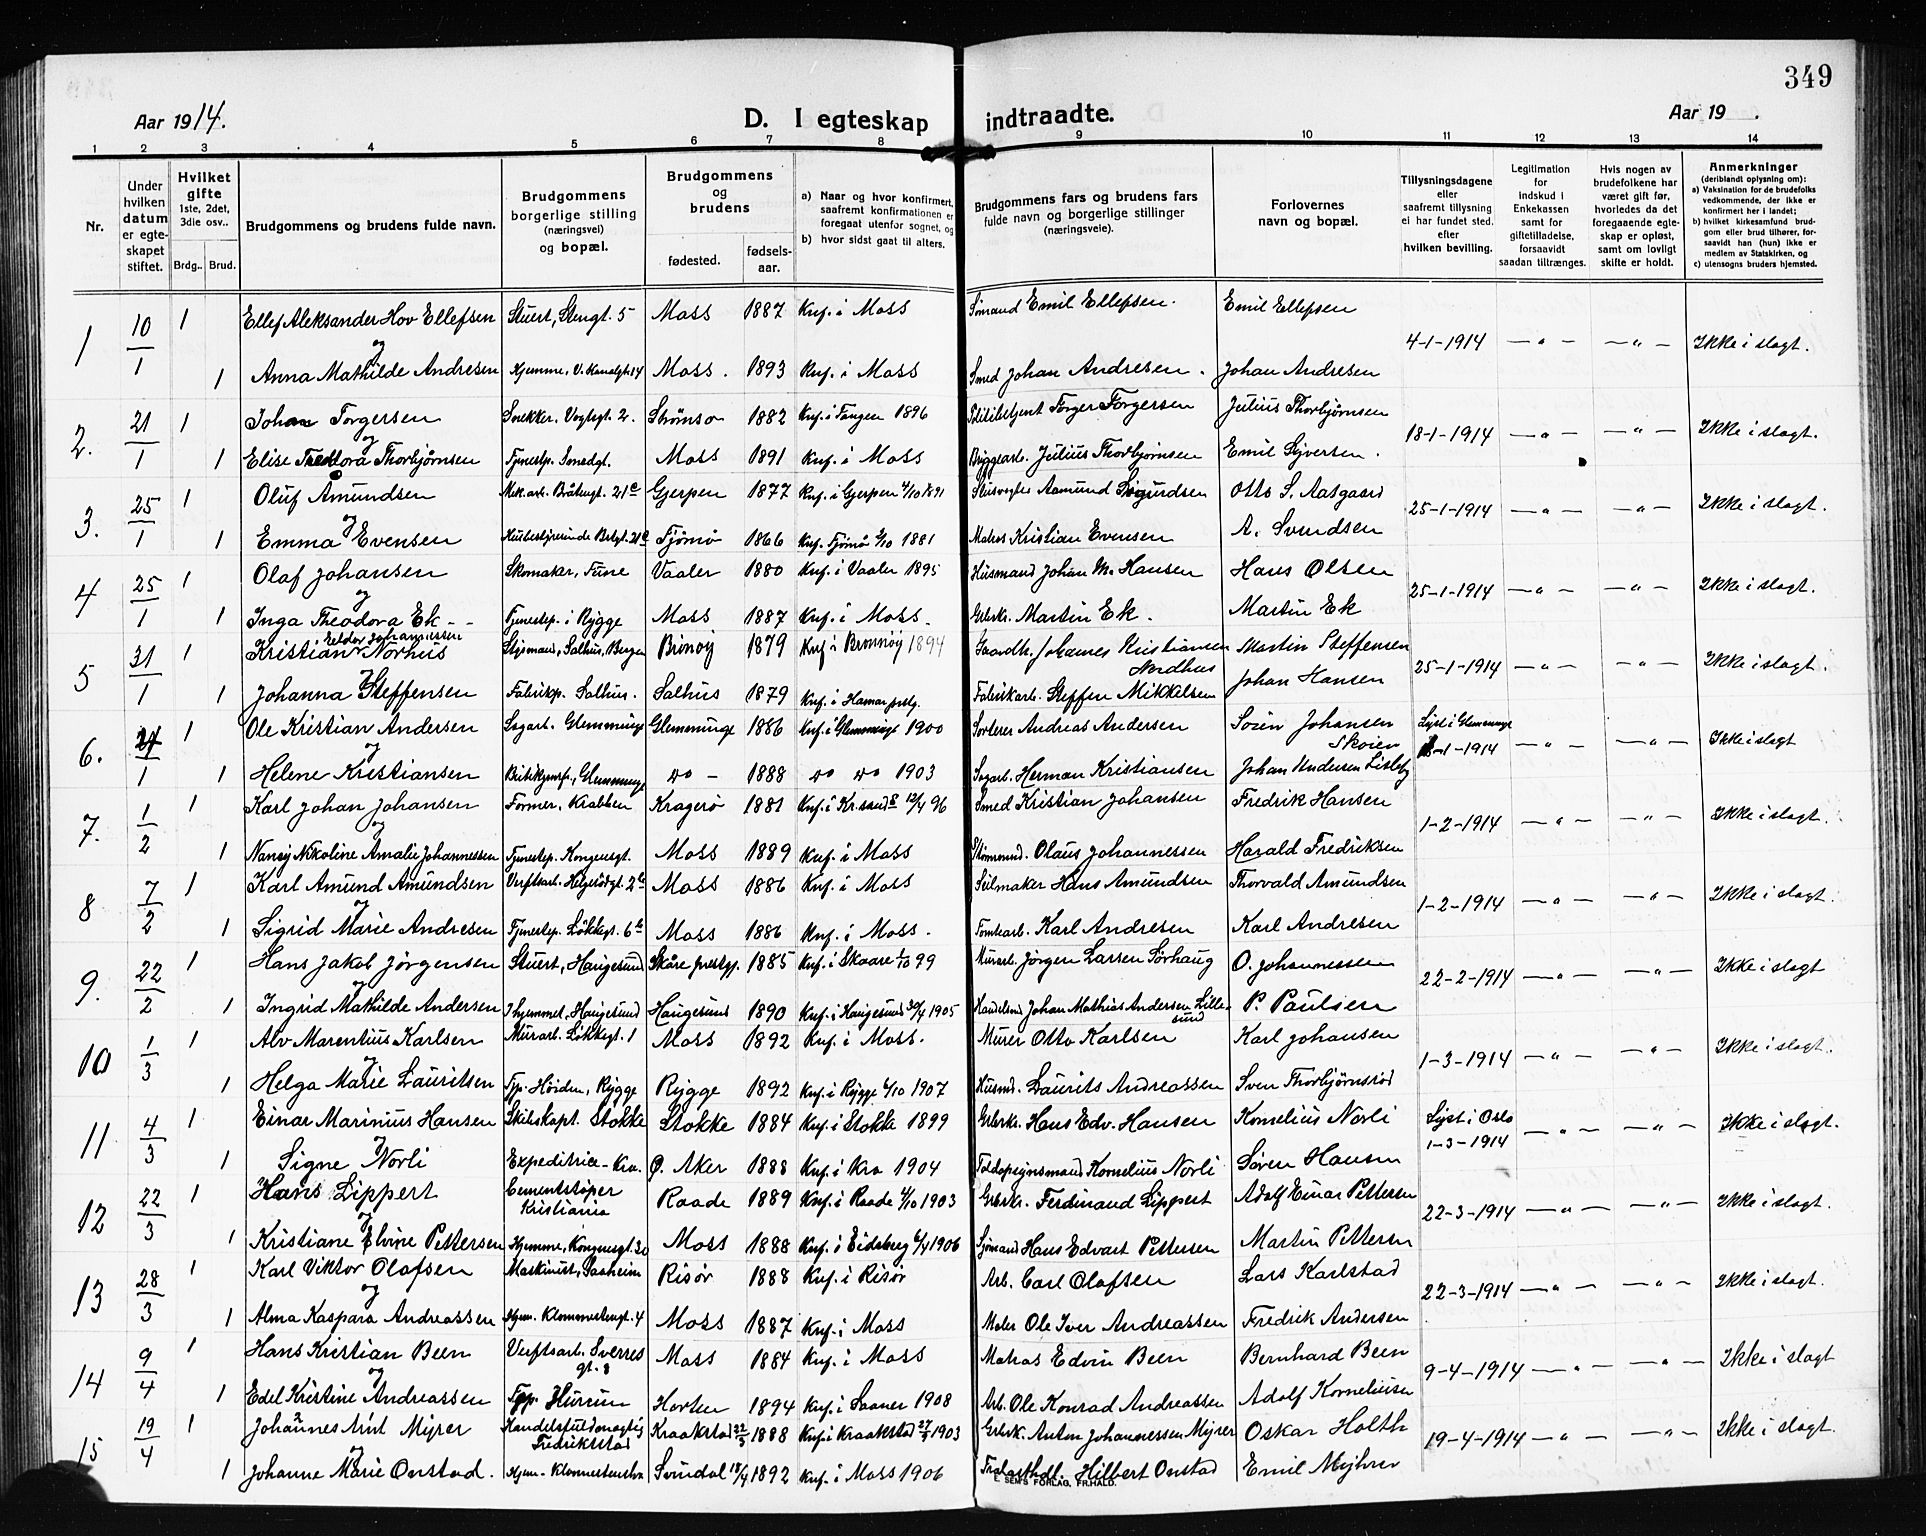 349
Aar 1914.
D. I egteskap indtraadte.
Aar 19 .
1 2 3 4 5 6 7 8 9 10 11 12 13 14
Nr.
Under hvilken datum er egte-skapet stiftet.
Hvilket gifte 1ste, 2det, 3die osv..
Brdg.. Brud.
Brudgommens og brudens fulde navn.
Brudgommens borgerlige stilling (næringsvei) og bopæl.
Brudgommens og brudens
fødested. fødsels-aar.
a) Naar og hvor konfirmert, saafremt konfirmationen er foregaat utenfor sognet, og
b) hvor sidst gaat til alters.
Brudgommens fars og brudens fars fulde navn og borgerlige stillinger (næringsveie).
Forlovernes navn og bopæl.
Tillysningsdagene eller saafremt tillysning ei har fundet sted. efter hvilken bevilling.
Legitimation for indskud i Enkekassen samt for giftetilladelse, forsaavidt saadan tiltrænges.
Hvis nogen av brudefolkene har været gift før, hvorledes da det foregaaende egte-skap er opløst, samt om lovligt skifte er holdt.
Anmerkninger (deriblandt oplysning om): a) Vaksination for de brudefolks vedkommende, der ikke er konfirmert her i landet; b) hvilket kirkesamfund brud-gom eller brud tilhører, for-saavidt han (hun) ikke er medlem av Statskirken, og c) utensogns bruders hjemsted.
1 10/1 1 Ellef Aleksander Hov Ellefsen Stuert, Stengt. 5 Moss 1887 Knf. i Moss Sømand Emil Ellefsen. Emil Ellefsen
og 4-1-1914 — " — — " — Ikke i slagt.
1 Anna Mathilde Andresen Hjemme, V. Kanalgt. 14 Moss. 1893 Knf. i Moss Smed Johan Andresen. Johan Andresen
2. 21/1 1 Johan Torgersen Snekker. Vogtsgt. 2. Strømsø 1882 Knf. i Tangen 1896 Torger Torgersen Julius Thorbjørnsen
og 18-1-1914 — " — — " — Ikke i slagt.
1 Elise Teodora Thorbjørnsen Tjenestep. Moss 1891 Knf. i Moss Bryggearb. Julius Thorbjørnsen Emil Syversen.
3. 25/1 1 Oluf Amundsen Mek. arb. 21 c Gjerpen 1877 Knf. i Gjerpen 4/10 1891 Slusvogter Aamund Sigurdsen Otto S. Aasgaard
og 25-1-1914 — " — — " — Ikke i slagt.
1 Emma Evensen Tjømø 1866 Knf. Tjømø 1881 Matros Kristian Evensen A. Svendsen
4 25/1 1 Olaf Johansen Skomaker, Tune Vaaler 1880 Knf. i Vaaler 1895 Husmand Johan M. Hansen Hans Olsen
og 25-1-1914 — " — — " — Ikke i slagt.
1 Inga Theodora Ek - - Tjenestep. i Rygge Moss 1887 Knf. i Moss. Grbrkr. Martin Ek. Martin Ek
5 31/1 1 Kristian Norhus Styrmand, Salhus, Bergen Brönöy 1879 Knf i Bronnöy 1894 Gaardb. Johannes Kristiansen Nordhus Martin Steffensen
25-1-1914 — " — — " — Ikke i slagt.
1 Johanna Steffensen Fabrikp. Salhus. Salhus 1879 Knf. i Hamar prstg. Fabrikarb. Steffen Mikkelsen Johan Hansen
6. 1 Ole Kristian Andersen Sagarb. Glemminge Glemminge 1886 Knf. i Glemminge 1900 Sorterer Andreas Andersen Søren Johansen Skoien Lyst i Glemminge
og 18-1-1914 — " — — " — Ikke i slagt
1 Helene Kristiansen Glemminge do - 1888 do do 1903 Sagarb. Herman Kristiansen Johan Andersen Lisleby
7. 1/2 1 Karl Johan Johansen Former, Krabben Kragerø 1881 Knf. i Kr.sand S 12/4 96 Smed Kristian Johansen Fredrik Hansen
og 1-2-1914 — " — — " — Ikke i slagt.
1 Nancy Nikoline Amalie Johannessen Tjenestep. Kongensgt. Moss 1889 Knf. i Moss Olaus Johannessen Harald Fredriksen
8 7/2 1 Karl Amund Amundsen Verftsarb. Helgerødgt. Moss 1886 Knf. i Moss Seilmaker Hans Amundsen Thorvald Amundsen
og 1-2-1914 — " — — " — Ikke i slagt.
1 Sigrid Marie Andresen Tjenestep. Løkkegt. 6 b Moss 1886 Knf. i Moss. Tomtearb. Karl Andresen Karl Andresen
9. 22/2 1 Hans Jakob Jørgensen Stuert, Haugesund Skåre prestgj. 1885 Knf. i Skaare 1/10 99 Murarb. Jørgen Larsen Sørhaug O. Johannessen
og 22-2-1914 — " — — " — Ikke i slagt
1 Ingrid Mathilde Andersen I hjemmet, Haugesund Haugesund 1890 Knf. i Haugesund 30/4 1905 Handelsmd Johan Mathias Andersen Lillesund P. Paulsen
10 1/3 1 Alv Marentius Karlsen Murarb. Løkkegt. 1 Moss 1892 Knf. i Moss. Murer Otto Karlsen Karl Johansen
og 1-3-1914 — " — — " — Ikke i slagt.
1 Helga Marie Lauritsen Tjp. Høiden, Rygge Rygge 1892 Knf. i Rygge 6/10 1907 Husmd. Laurits Andreassen Sven Thorbjørnsrød
11 4/3 1 Einar Marinius Hansen Skibskapt. Stokke Stokke 1884 Knf. i Stokke 1899 Grbrkr. Hans Edv. Hansen Kornelius Norli Lyst i Oslo
og 1-3-1914 — " — — " — Ikke i slagt.
1 Signe Norli Expeditrice - Kra. Ø. Aker 1888 Knf. i Kra 1904 Toldopsynsmand Kornelius Norli Søren Hansen
12 22/3 1 Hans Lippert Cementstøper Kristiania Raade 1889 Knf. i Raade 4/10 1903 Grbrkr. Ferdinand Lippert Adolf Einar Pettersen
og 22-3-1914 — " — — " — Ikke i slagt.
1 Kristiane Elvine Pettersen Hjemme, Kongensgt. 30 Moss 1888 Knf. i Eidsberg 6/4 1906 Sjömand Hans Edvart Pettersen Martin Pettersen
13 28/3 1 Karl Viktor Olafsen Maskinist, Saaheim Risør 1888 Knf. i Risør Arb. Carl Olafsen Lars Karlstad
og 22-3-1914 — " — — " — Ikke i slagt.
1 Alma Kaspara Andreassen Hjem. Klommestengt. 4 Moss 1887 Knf. i Moss Maler Ole Iver Andreassen Fredrik Andersen
14 9/4 1 Hans Kristian Been Verftsarb. Sverres gt. 8 Moss 1884 Knf. i Moss Matros Edvin Been Bernhard Been
og 9-4-1914 — " — — " — Ikke i slagt
1 Edel Kristine Andreassen Tjp. Hurum Horten 1894 Knf. i Saaner 1908 Arb. Ole Konrad Andreassen Adolf Korneliusen
15 19/4 1 Johannes Arnt Myrer Handelsfuldmægtig Fredrikstad Kraakstad 22/3 1888 Knf. i Kraakstad 27/9 1903 Grbrk. Anton Johannessen Myrer Oskar Holth
og 19-4-1914 — " — — " — Ikke i slagt
1 Johanne Marie Onstad. Hjem- Svindal 18/4 1892 Knf. i Moss 1906 Hilbert Onstad Emil Myhrer
E. SEMS FORLAG, FR.HALD.